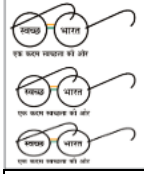 स्वच्छ भारत
एक कदम स्वच्छता की ओर
स्वच्छ भारत
एक कदम स्वच्छता की ओर
स्वच्छ भारत
एक कदम स्वच्छता की ओर